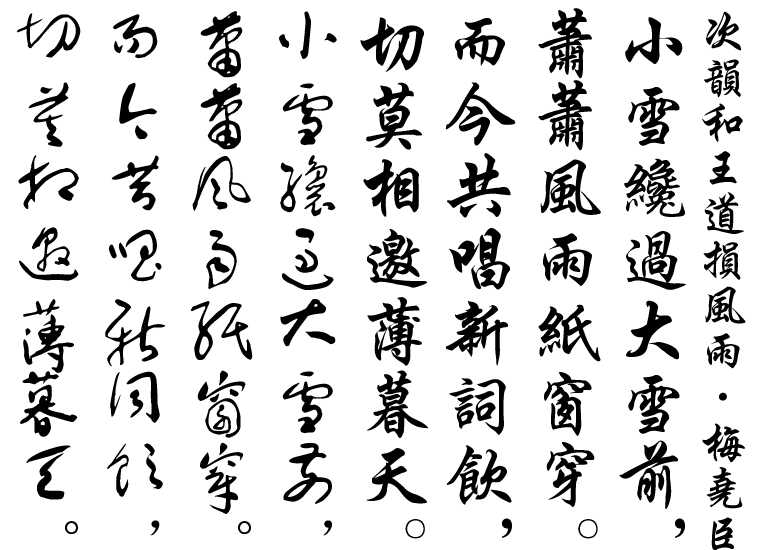 次韻和王道損風雨·梅堯臣
小雪纔過大雪前,
蕭蕭風雨紙窗穿。
而今共唱新詞飲,
切莫相邀薄暮天。
小雪纔過大雪前,
蕭蕭風雨紙窗穿。
而今共唱新詞飲,
切莫相邀薄暮天。